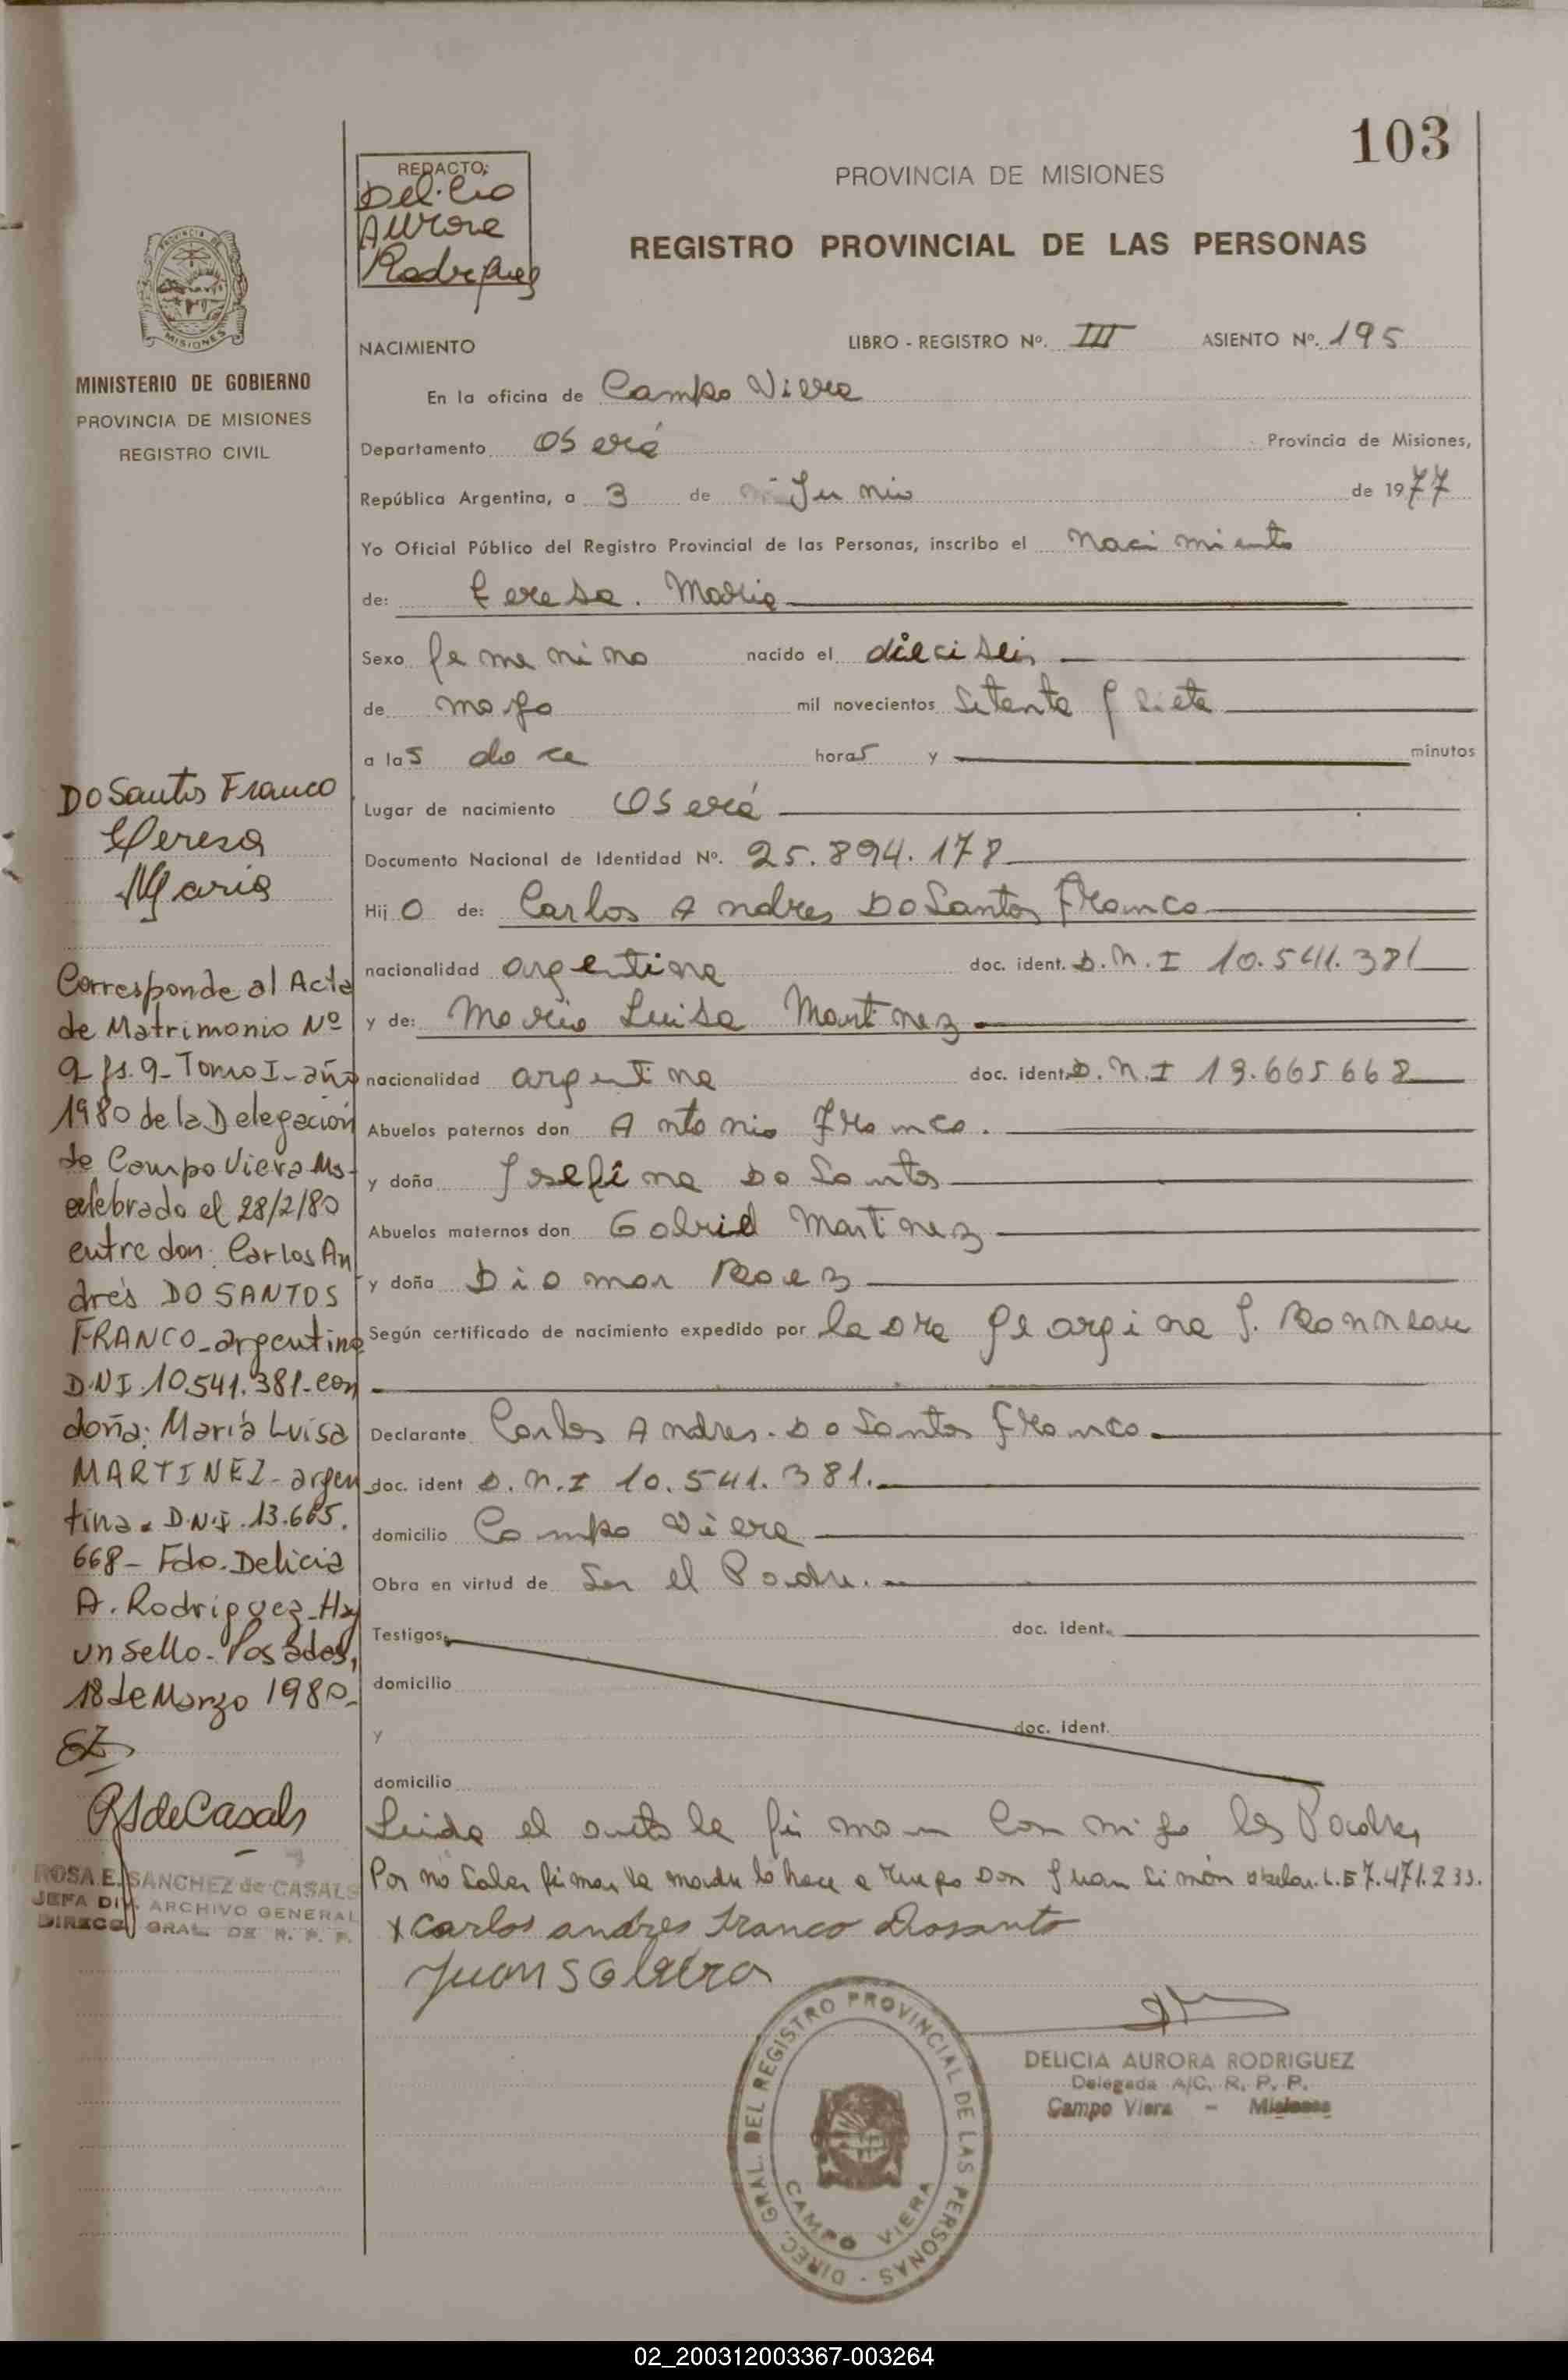 103
REDACTO:
Delicia
Aurora
Rodriguez
PROVINCIA DE MISIONES
REGISTRO PROVINCIAL DE LAS PERSONAS
PROVINCIA DE
MISIONES
MINISTERIO DE GOBIERNO
PROVINCIA DE MISIONES
REGISTRO CIVIL
NACIMIENTO LIBRO - REGISTRO Nº. III ASIENTO Nº. 195
En la oficina de Campo Viera
Departamento Oberá Provincia de Misiones,
República Argentina, a 3 de Junio de 1977
Yo Oficial Público del Registro Provincial de las Personas, inscribo el nacimiento
de: Teresa. Maria
Sexo femenino nacido el dieciseis
de mayo mil novecientos Setenta y Siete
a las doce horas y minutos
Lugar de nacimiento Oberá
Documento Nacional de Identidad Nº. 25.894.178
Hijo de: Carlos Andres Do Santos Franco
nacionalidad argentina doc. ident. D.N.I 10.541.381
y de: Maria Luisa Martinez
nacionalidad argentina doc. ident. D.N.I 13.665668
Abuelos paternos don Antonio Franco.
y doña Josefina Do Santos
Abuelos maternos don Gabriel Martinez
y doña Diomar
Según certificado de nacimiento expedido por la Dra Georgina J.
Declarante Carlos Andres. Do Santos Franco.
doc. ident D.N.I 10.541.381.
domicilio Campo Viera
Obra en virtud de Ser el Padre.
Testigos doc. ident.
domicilio
y doc. ident.
domicilio
Leida el acta la firman Conmigo los Padres
Por no Saber firmar la madre lo hace a ruego Don Juan Simón L.E 7.471.233.
x Carlos andres Franco Dosanto
Juan S
DIREC. GRAL. DEL REGISTRO PROVINCIAL DE LAS PERSONAS -
CAMPO VIERA
DELICIA AURORA RODRIGUEZ
Delegada A/C. R. P. P.
Campo Viera - Misiones
DO Santos Franco
Teresa
Maria
Corresponde al Acta
de Matrimonio Nº
9 fs. 9- Tomo I- año
1980 de la Delegación
de Campo Viera Ms-
celebrado el 28/2/80
entre don: Carlos An
drés DO SANTOS
FRANCO-argentino
D.N.I. 10.541.381-con
doña: María Luísa
MARTINEZ-argen
tina. D.N.I. 13.665.
668- Fdo. Delicia
A. Rodriguez-Hay
un sello-Posadas,
18 de Marzo 1980-
RSdeCasals
ROSA E. SANCHEZ de CASALS
JEFA DIV. ARCHIVO GENERAL
DIRECC. GRAL. DE R. P. P.
02_200312003367-003264